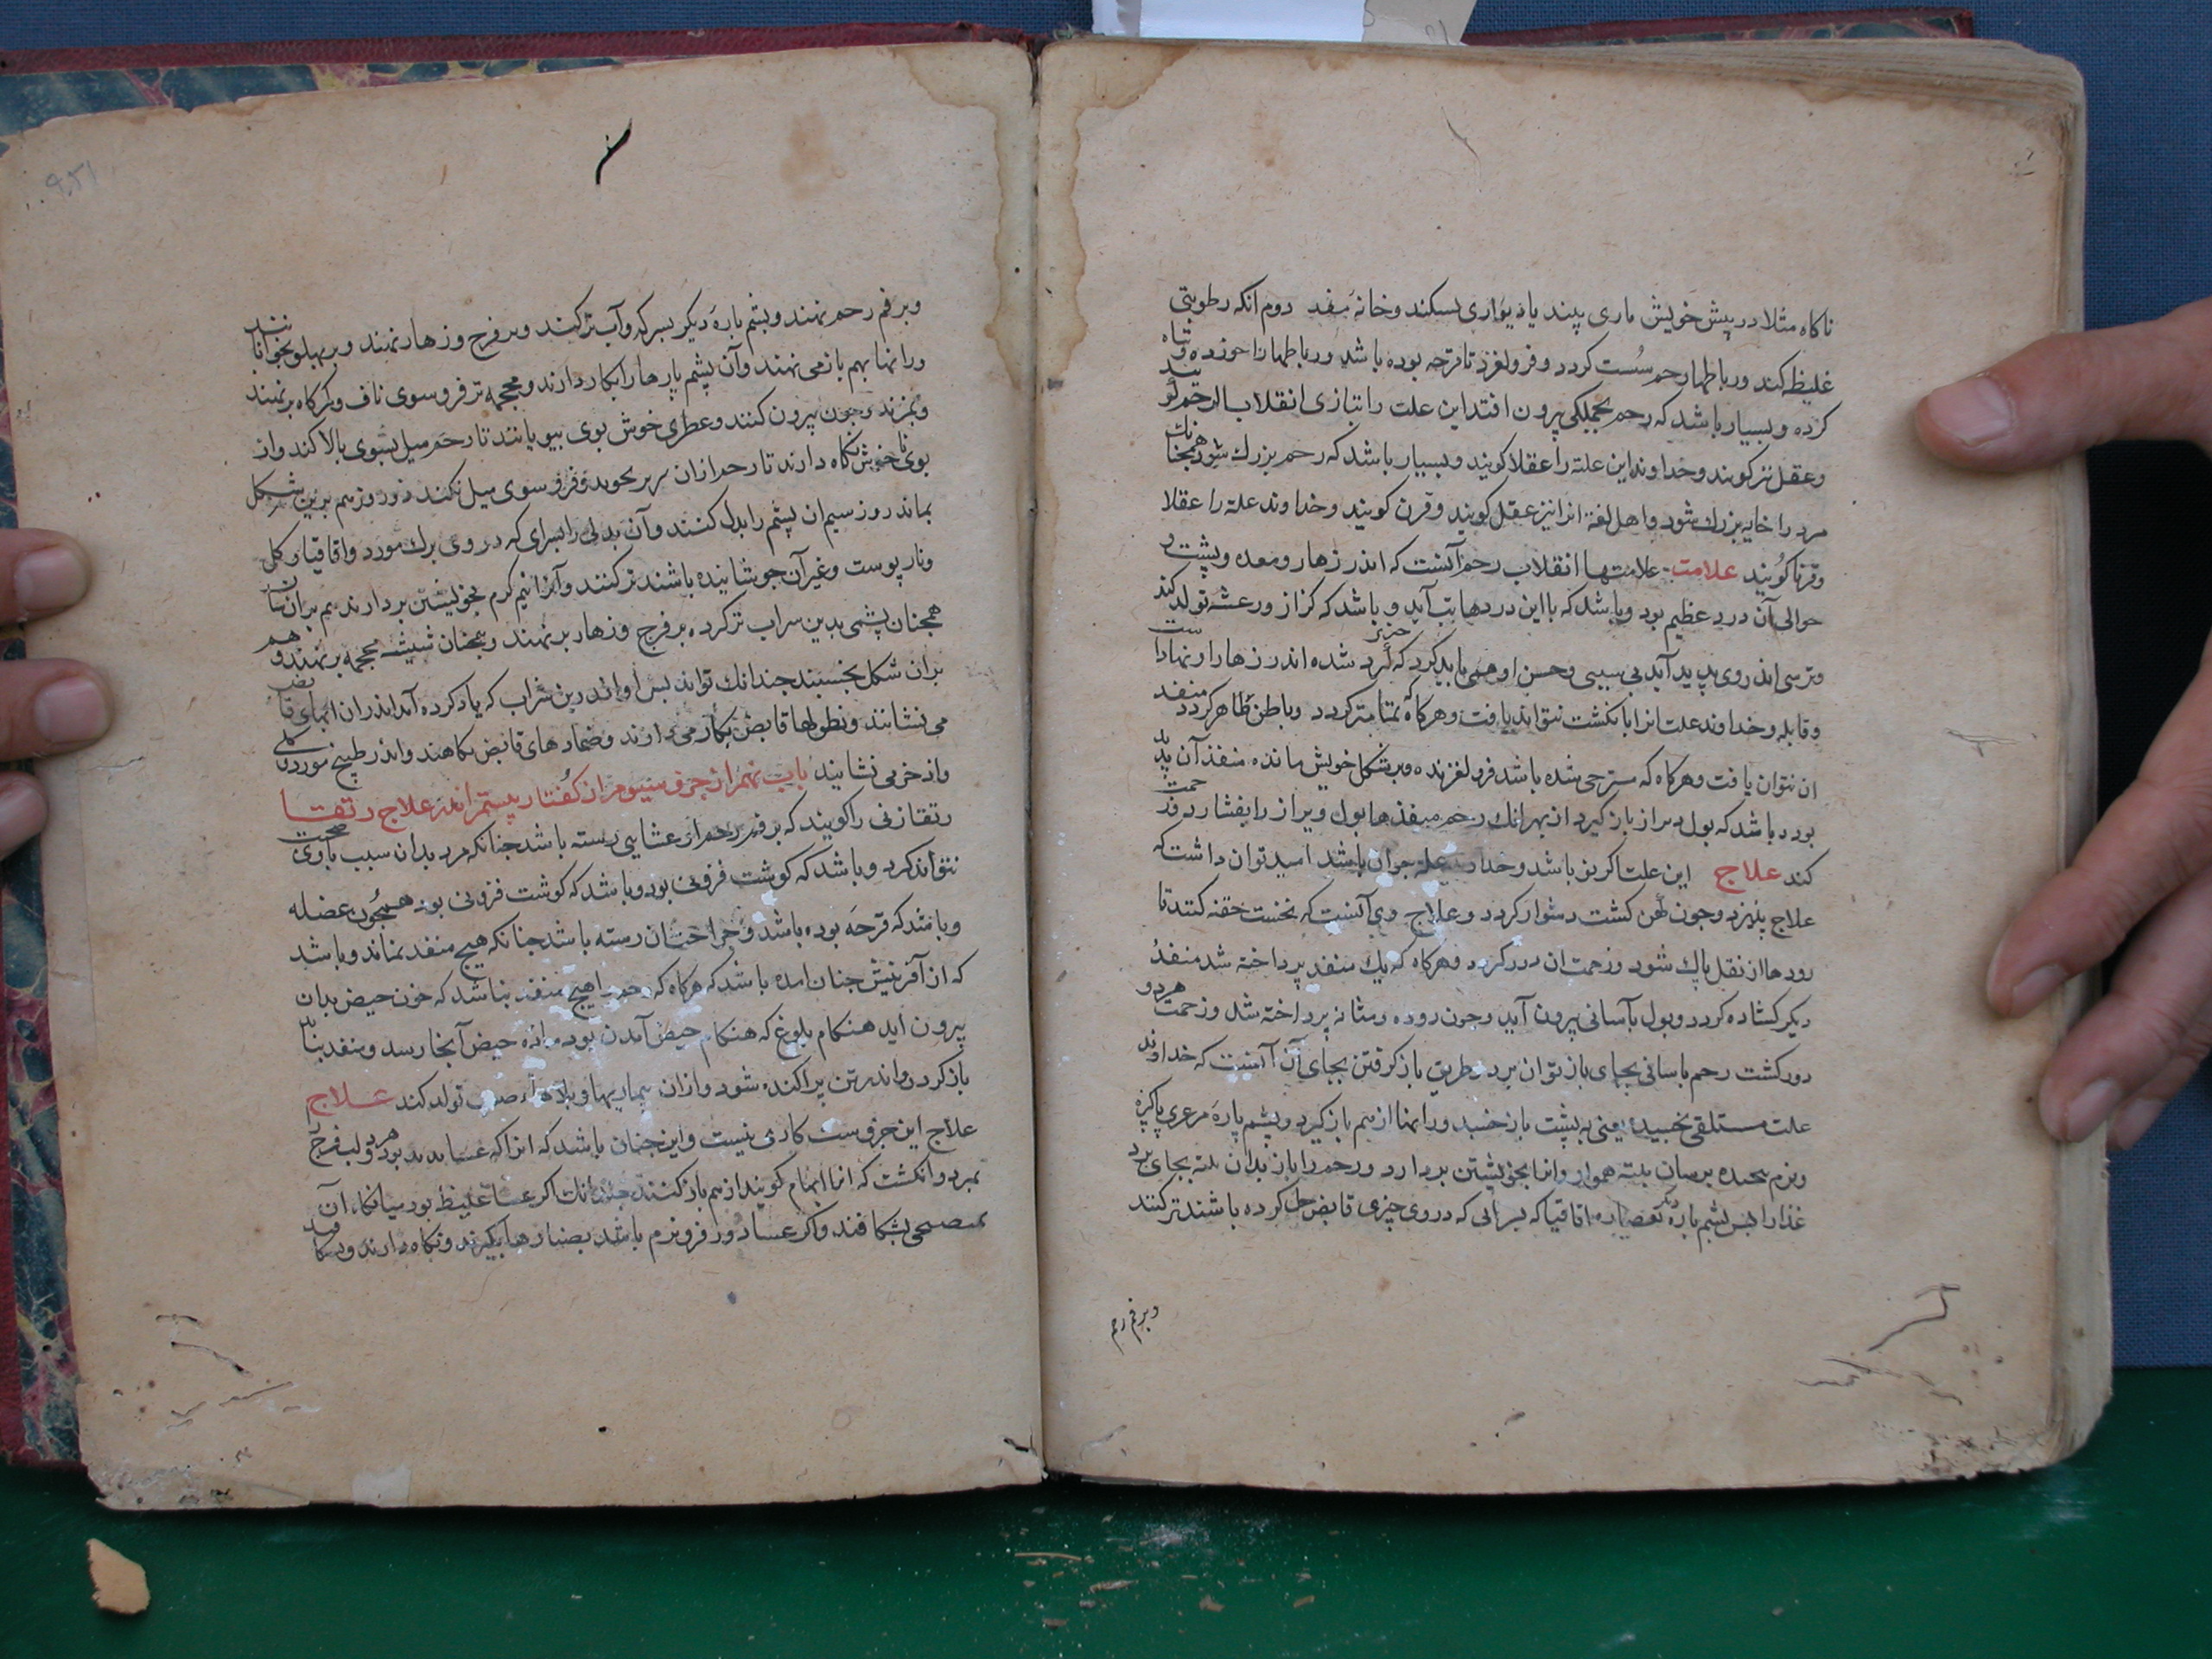 ناکاه مثلا در پیش خویش ماری بیند یا دیواری بسکند و خانه بیفتد دوم انکه رطوبتی
غلیظ کند و رباطها رحم سُست کردد و فرولغزد تا قرحه بوده باشد و رباطها را خورده و تباه
کرده و بسیار باشد که رحم بجملکی بیرون افتد این علت را بتازی انقلاب الرحم کویند
وعقل نیز کویند وخداوند این علت را عقلا کویند و بسیار باشد که رحم بزرك شود همجنانك
مرد را خایه بزرك شود و اهل لغة انرا نیز عقل کویند و قرن کویند وخداوند علة را عقلا
وقرنا کویند علامت علامتها انقلاب رحم آنست که اندر زهار ومعده و پشت و
حوالی آن درد عظیم بود و باشد که با این دردها تب آید و باشد که کزاز و رعشه تولد کند
وترسی اندر وی پدید آید بی سببی و حس او همی یابد که چیزی کرد شده است اندر زهار او نهاد
وقابله وخداوند علت انرا بانکشت بتواند یافت وهرکاه که تمامتر کردد و باطن ظاهر کردد منفد
ان نتوان یافت وهرکاه که مسترخی شده باشد فرولغزنده و بر شکل خویش مانده منفذ آن پدید
بود و باشد که بول و براز باز کیرد از بهر انك رحم منفذها بول و براز را بفشارد و زحمت
کند علاج این علت اکر نو باشد وخداوند علة جوان باشد امید توان داشت که
علاج پذیرد وجون کهن کشت دشوار کردد و علاج وی آنست که نخست حقنه کنند تا
رودها از ثقل پاك شود و زحمت ان دور کردد وهرکاه که یك منفد پرداخته شد منفذ
دیکر کشاده کردد و بول بآسانی بیرون آید وجون روده و مثانه پرداخته شد و زحمت هر دو
دور کشت رحم باسانی بجای باز توان برد و طریق باز کرفتن بجای آن آنست که خداوند
علت مستلقی بخسبد یعنی بر پشت باز خسبد و رانها از هم باز کیرد و پشم پارهٔ مرعزی پاکیزه
ونرم بر سان بلته هموار و انرا بخویشتن بردارد و رحم را باز بدان بلته بجای برد
پس پشم پارهٔ دیکر بعصاره اقاقیا که بسرابی که در وی چیزی قابض حل کرده باشند تر کنند
وبر فم رحم
وبر فم رحم نهند و پشم پارهٔ دیکر بسرکه و آب تر کنند وبر فرج و زهار نهند و بر پهلو بخوابانند
ورانها بهم باز می نهند وآن پشم پارها را نکاه دارند و محجمه تر فروسوی ناف و کرکاه بر نهند
وبمزند وجون بیرون کنند وعطری خوش بوی ببویانند تا رحم میل بسوی بالا کند و از
بوی ناخوش نکاه دارند تا رحم از ان نکند دو روز هم برین شکل
بماند روز سیم ان پشم را بدل کنند وآن بدل را بسرابی که در وی برك مورد و اقاقیا و کل
ونار پوست و غیر آن جوشانیده باشند تر کنند و آنرا نیم کرم بخویشتن بردارند هم بران سان
همجنان پشمی بدین سراب تر کرده بر فرج و زهار بر نهند و همجنان شیشه محجمه بر نهند و هم
بران شکل بخسبند جندانك تواند پس او اندرین شراب که یاد کرده آمد اندر ان ابهای قابض
می نشانند ونطولها قابض بکار می دارند وضمادهای قابض نهند و اندر طبیخ مورد و کل
واذخر می نشانند باب نهم از جزو سیوم از کفتار بیستم اندر علاج رتقا
رتقا زنی را کویند که بر فم رحم او غشایی رسته باشد جنانکه مرد بدان سبب با وی صحبت
نتواند کرد و باشد که کوشت فزونی بود و باشد که کوشت فزونی بود همجون عضله
وباشد که قرحه بوده باشد وجراحت ان رسته باشد جنانکه هیج منفد نماند و باشد
که از آفرینش جنان امده باشد که هرکاه که رحم را هیج منفذ نباشد که خون حیض بدان
بیرون اید هنکام بلوغ که هنکام حیض آمدن بود ماده حیض آنجا رسد و منفد نیابد
باز کردد و اندر تن پراکنده شود و ازان بیماریها و بلاها صعب تولد کند علاج
علاج این جزو ست کاری نیست و این جنان باشد که انرا که غشا بود هر دو لب فرج
بمرد وانکشت که انرا ابهام کویند از هم باز کنند جندانك اکر غشا غلیظ بود میانکاه آن
بمبضعی بشکافند و اکر غشا دورفرو نرم باشد بصنارها بکیرند و نکاه دارند و بشکافند